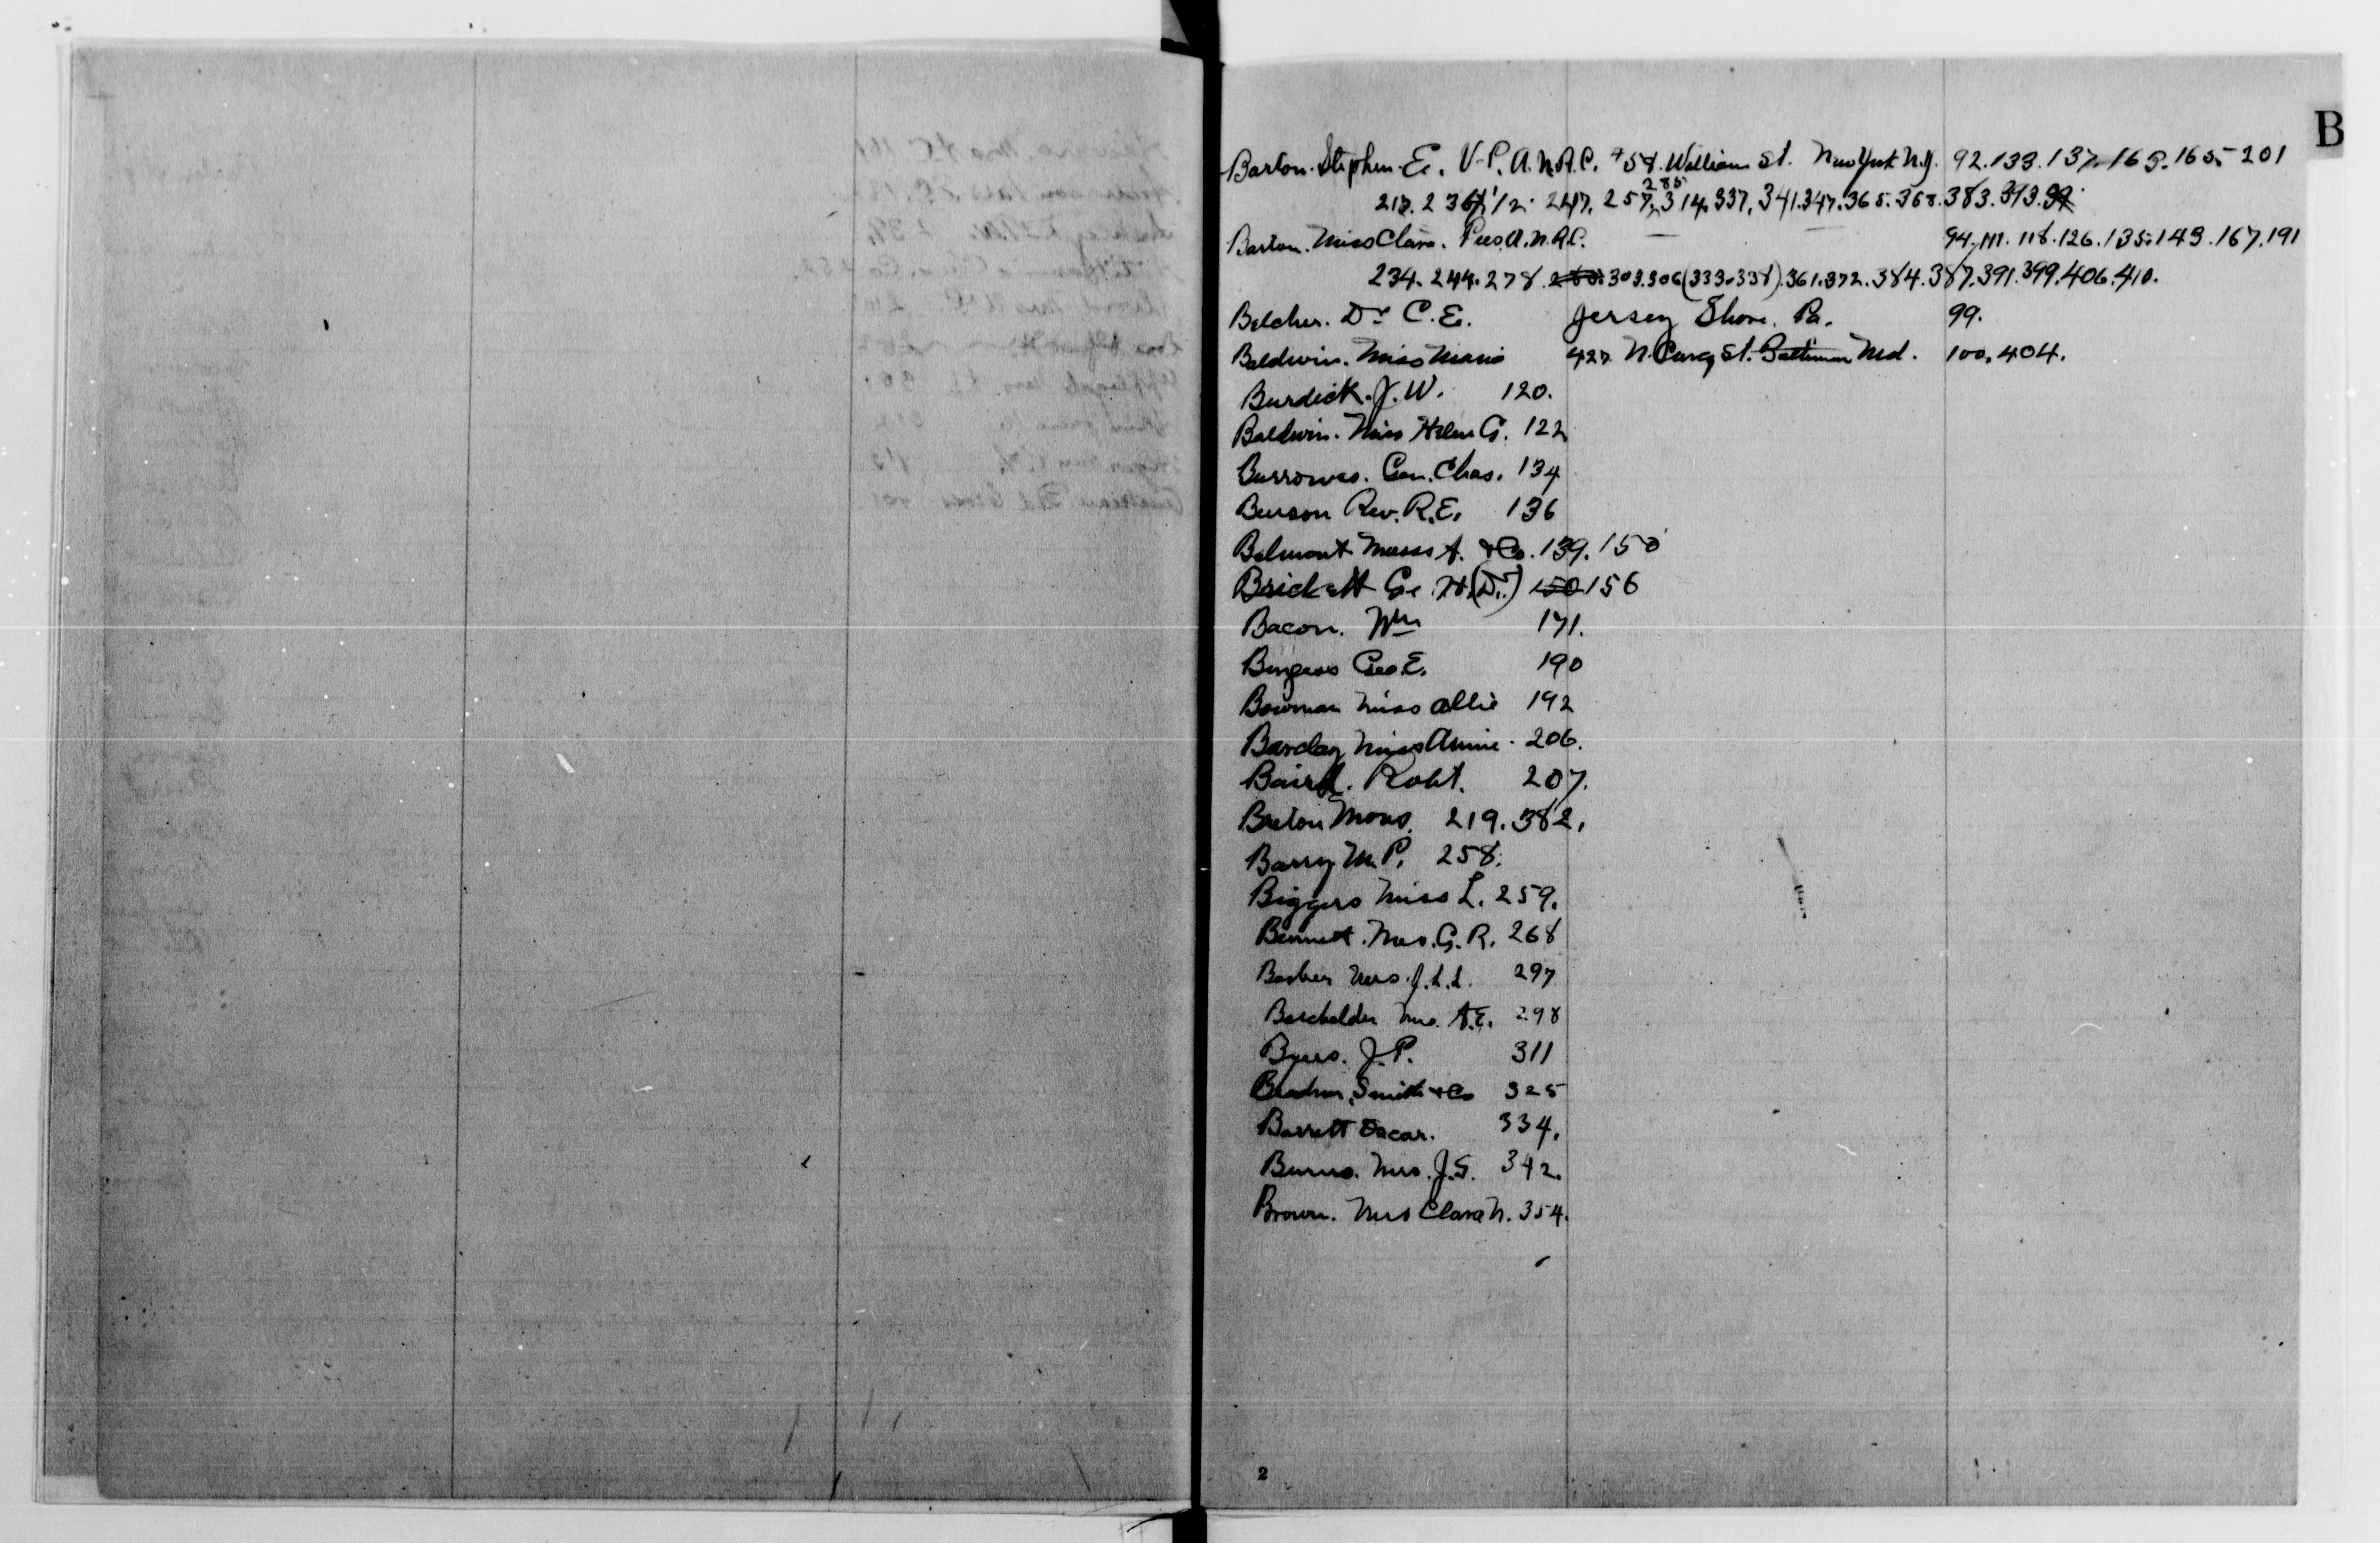 B
Barton. Stephen. E. V-P. A.N.R.C. #58. William St. New York N.Y. 92.133.137.163.165.201
285
217. 236 1/2. 247. 257, 314, 337, 341.347.365.368.383.393.
Barton. Miss Clara. Pres. A.N.R.C. 94.111.118.126.135.143.167.191
234.244.278.280.303.306(333.338).361.372.384.387.391.399.406.410.
Belcher. Dr C.E. Jersey Shore. Pa. 99.
Baldwin. Miss Marie 427 N. St. Baltimore Md. 100, 404.
Burdick. J.W. 120.
Baldwin. Miss Helen G. 122
Burrowes. Gen. Chas. 134
Burson Rev. R.E. 136
Belmont Messs A. & Co. 139. 150
Brickett Ge H.(Dr.) 150 156
Bacon. Wm 171.
Burgess Geo. E. 190
Bowman Miss Allie 192
Barclay Miss Annie. 206.
Baird. Robt. 207.
Breton Mons. 219. 382.
Barry M.P. 258.
Biggers Miss L. 259.
Bennett. Mrs. G.R. 268
Mrs. J.L.L. 297
Mrs. A.E. 298
Byers. J.P. 311
Smith & Co 325
Barrett Oscar. 334.
Burns. Mrs. J.S. 342.
Brown. Mrs Clara N. 354.
2